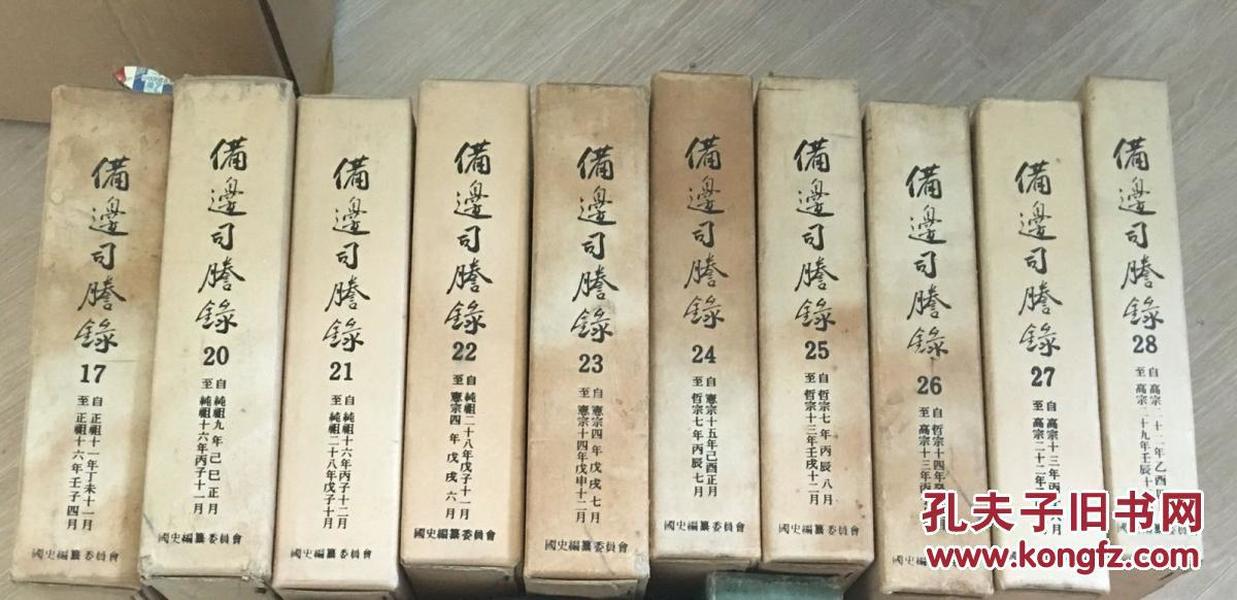 備邊司謄錄
17
自 正祖十一年丁未十一月
至 正祖十六年壬子四月
國史編纂委員會
備邊司謄錄
20
自 純祖九年己巳正月
至 純祖十六年丙子十一月
國史編纂委員會
備邊司謄錄
21
自 純祖十六年丙子十二月
至 純祖二十八年戊子十月
國史編纂委員會
備邊司謄錄
22
自 純祖二十八年戊子十一月
至 憲宗四年戊戌六月
國史編纂委員會
備邊司謄錄
23
自 憲宗四年戊戌七月
至 憲宗十四年戊申十二月
國史編纂委員會
備邊司謄錄
24
自 憲宗十五年己酉正月
至 哲宗七年丙辰七月
國史編纂委員會
備邊司謄錄
25
自 哲宗七年丙辰八月
至 哲宗十三年壬戌十二月
國史編纂委員會
備邊司謄錄
26
自 哲宗十四年
至 高宗十三年丙
國史編
備邊司謄錄
27
自 高宗十三年丙
至 高宗二十二年
備邊司謄錄
28
自 高宗二十二年乙酉
至 高宗二十九年壬辰十
國史編纂委員會
孔夫子旧书网
www.kongfz.com